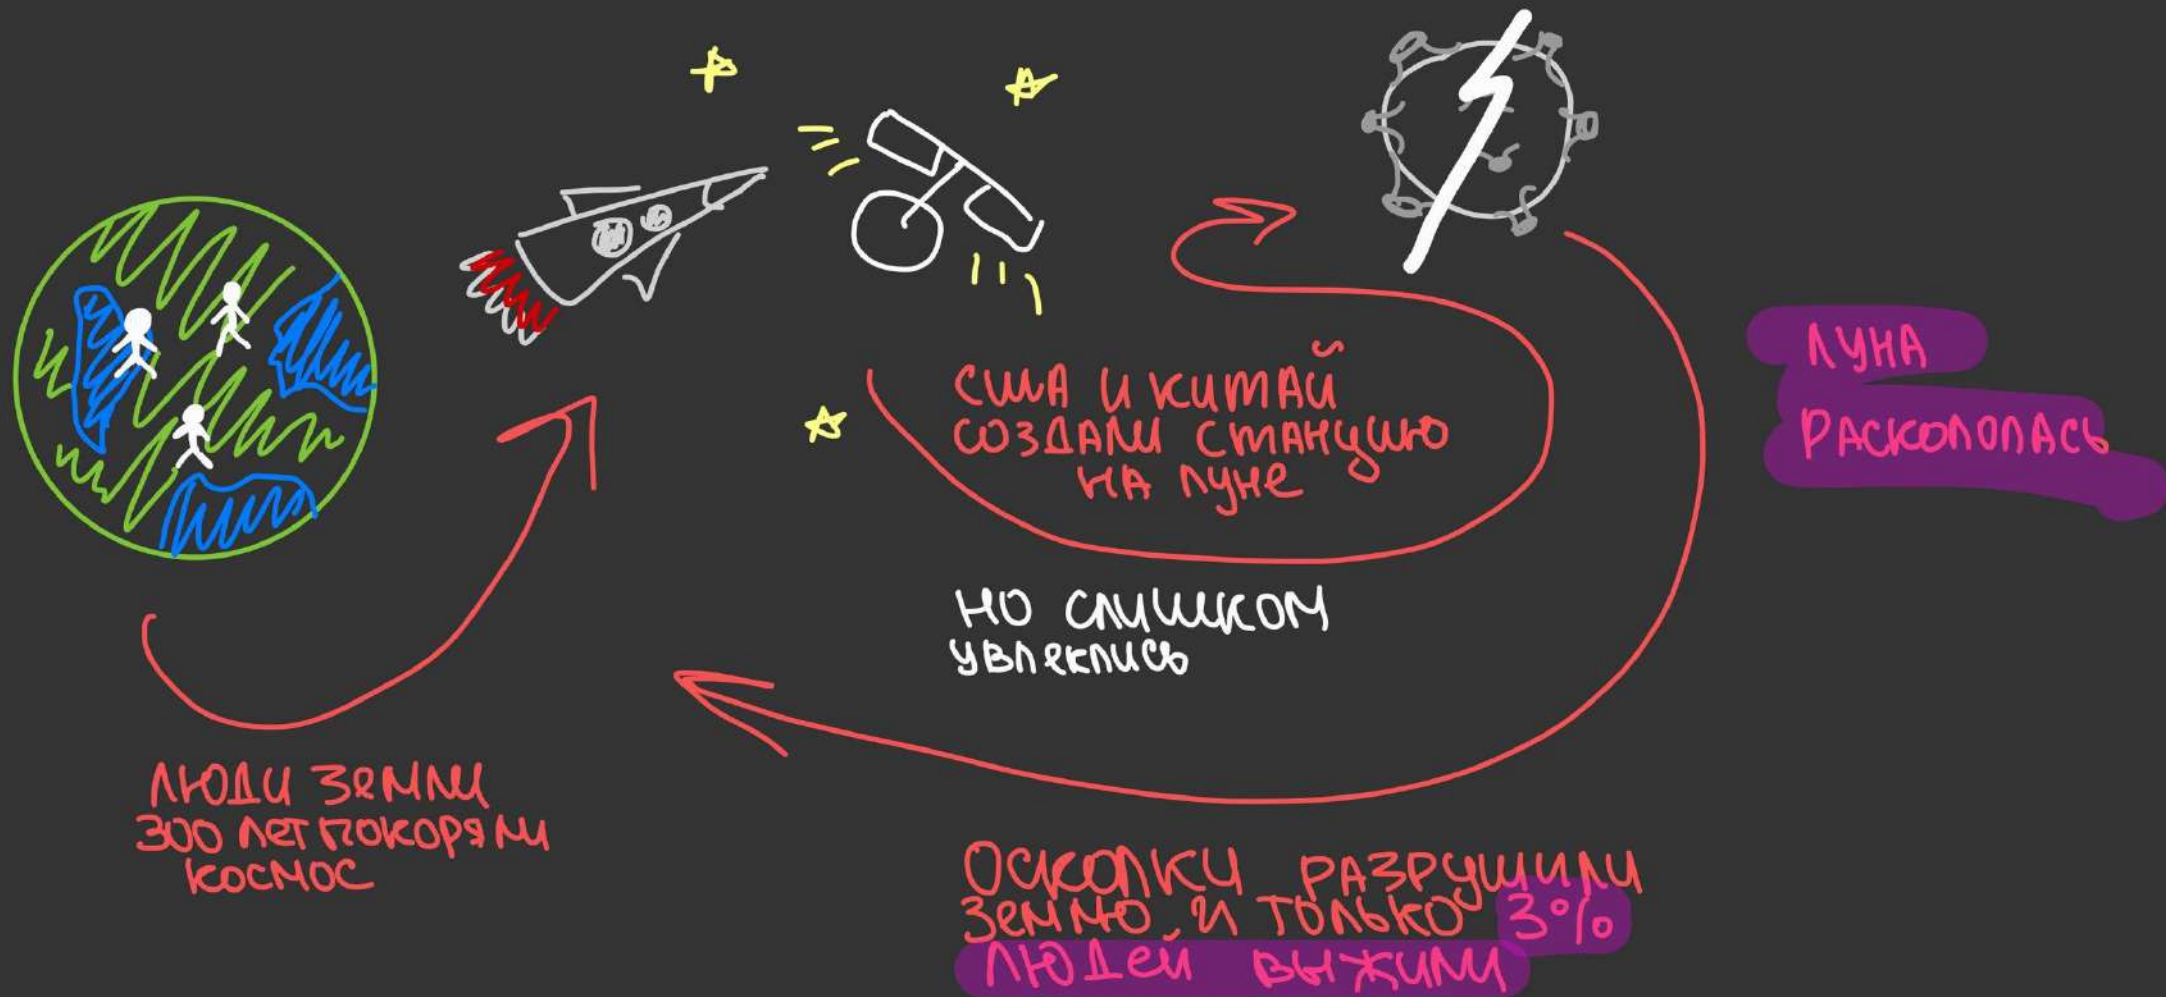 ЛЮДИ ЗЕМЛИ
300 ЛЕТ ПОКОРЯЛИ
КОСМОС
США И КИТАЙ
СОЗДАЛИ СТАНЦИЮ
НА ЛУНЕ
НО СЛИШКОМ
УВЛЕКЛИСЬ
ЛУНА
РАСКОЛОЛАСЬ
ОСКОЛКИ РАЗРУШИЛИ
ЗЕМЛЮ, И ТОЛЬКО 3%
ЛЮДЕЙ ВЫЖИЛИ